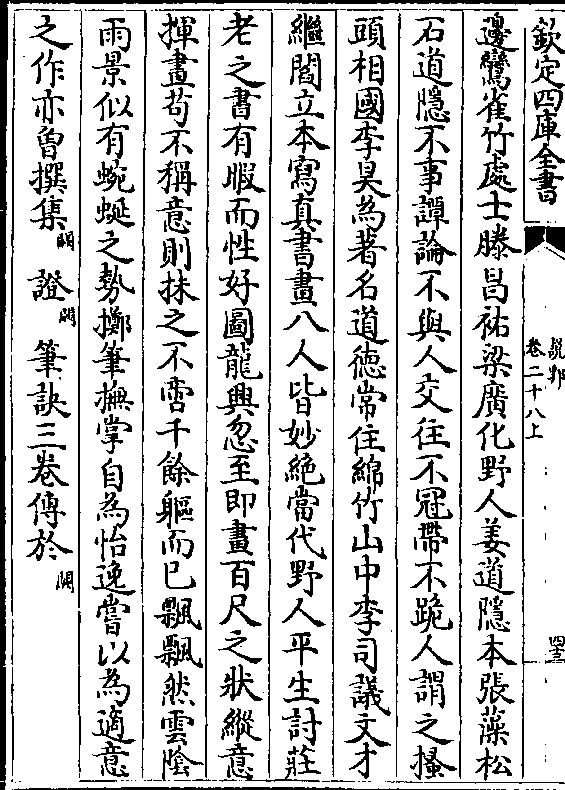 欽定四庫全書
說郛
卷二十八上
四十三
邊鸞雀竹處士滕昌祐梁廣化野人姜道隱本張藻松
石道隱不事譚論不與人交往不冠帶不跪人謂之搔
頭相國李昊為著名道德常住綿竹山中李司議文才
繼閻立本寫真書畫八人皆妙絶當代野人平生討莊
老之書有暇而性好圖龍興忽至即畫百尺之狀縱意
揮畫苟不稱意則抹之不啻千餘軀而已飄飄然雲陰
雨景似有蜿蜒之勢擲筆撫掌自為怡逸嘗以為適意
之作亦曾撰集闕證闕筆訣三卷傳於闕